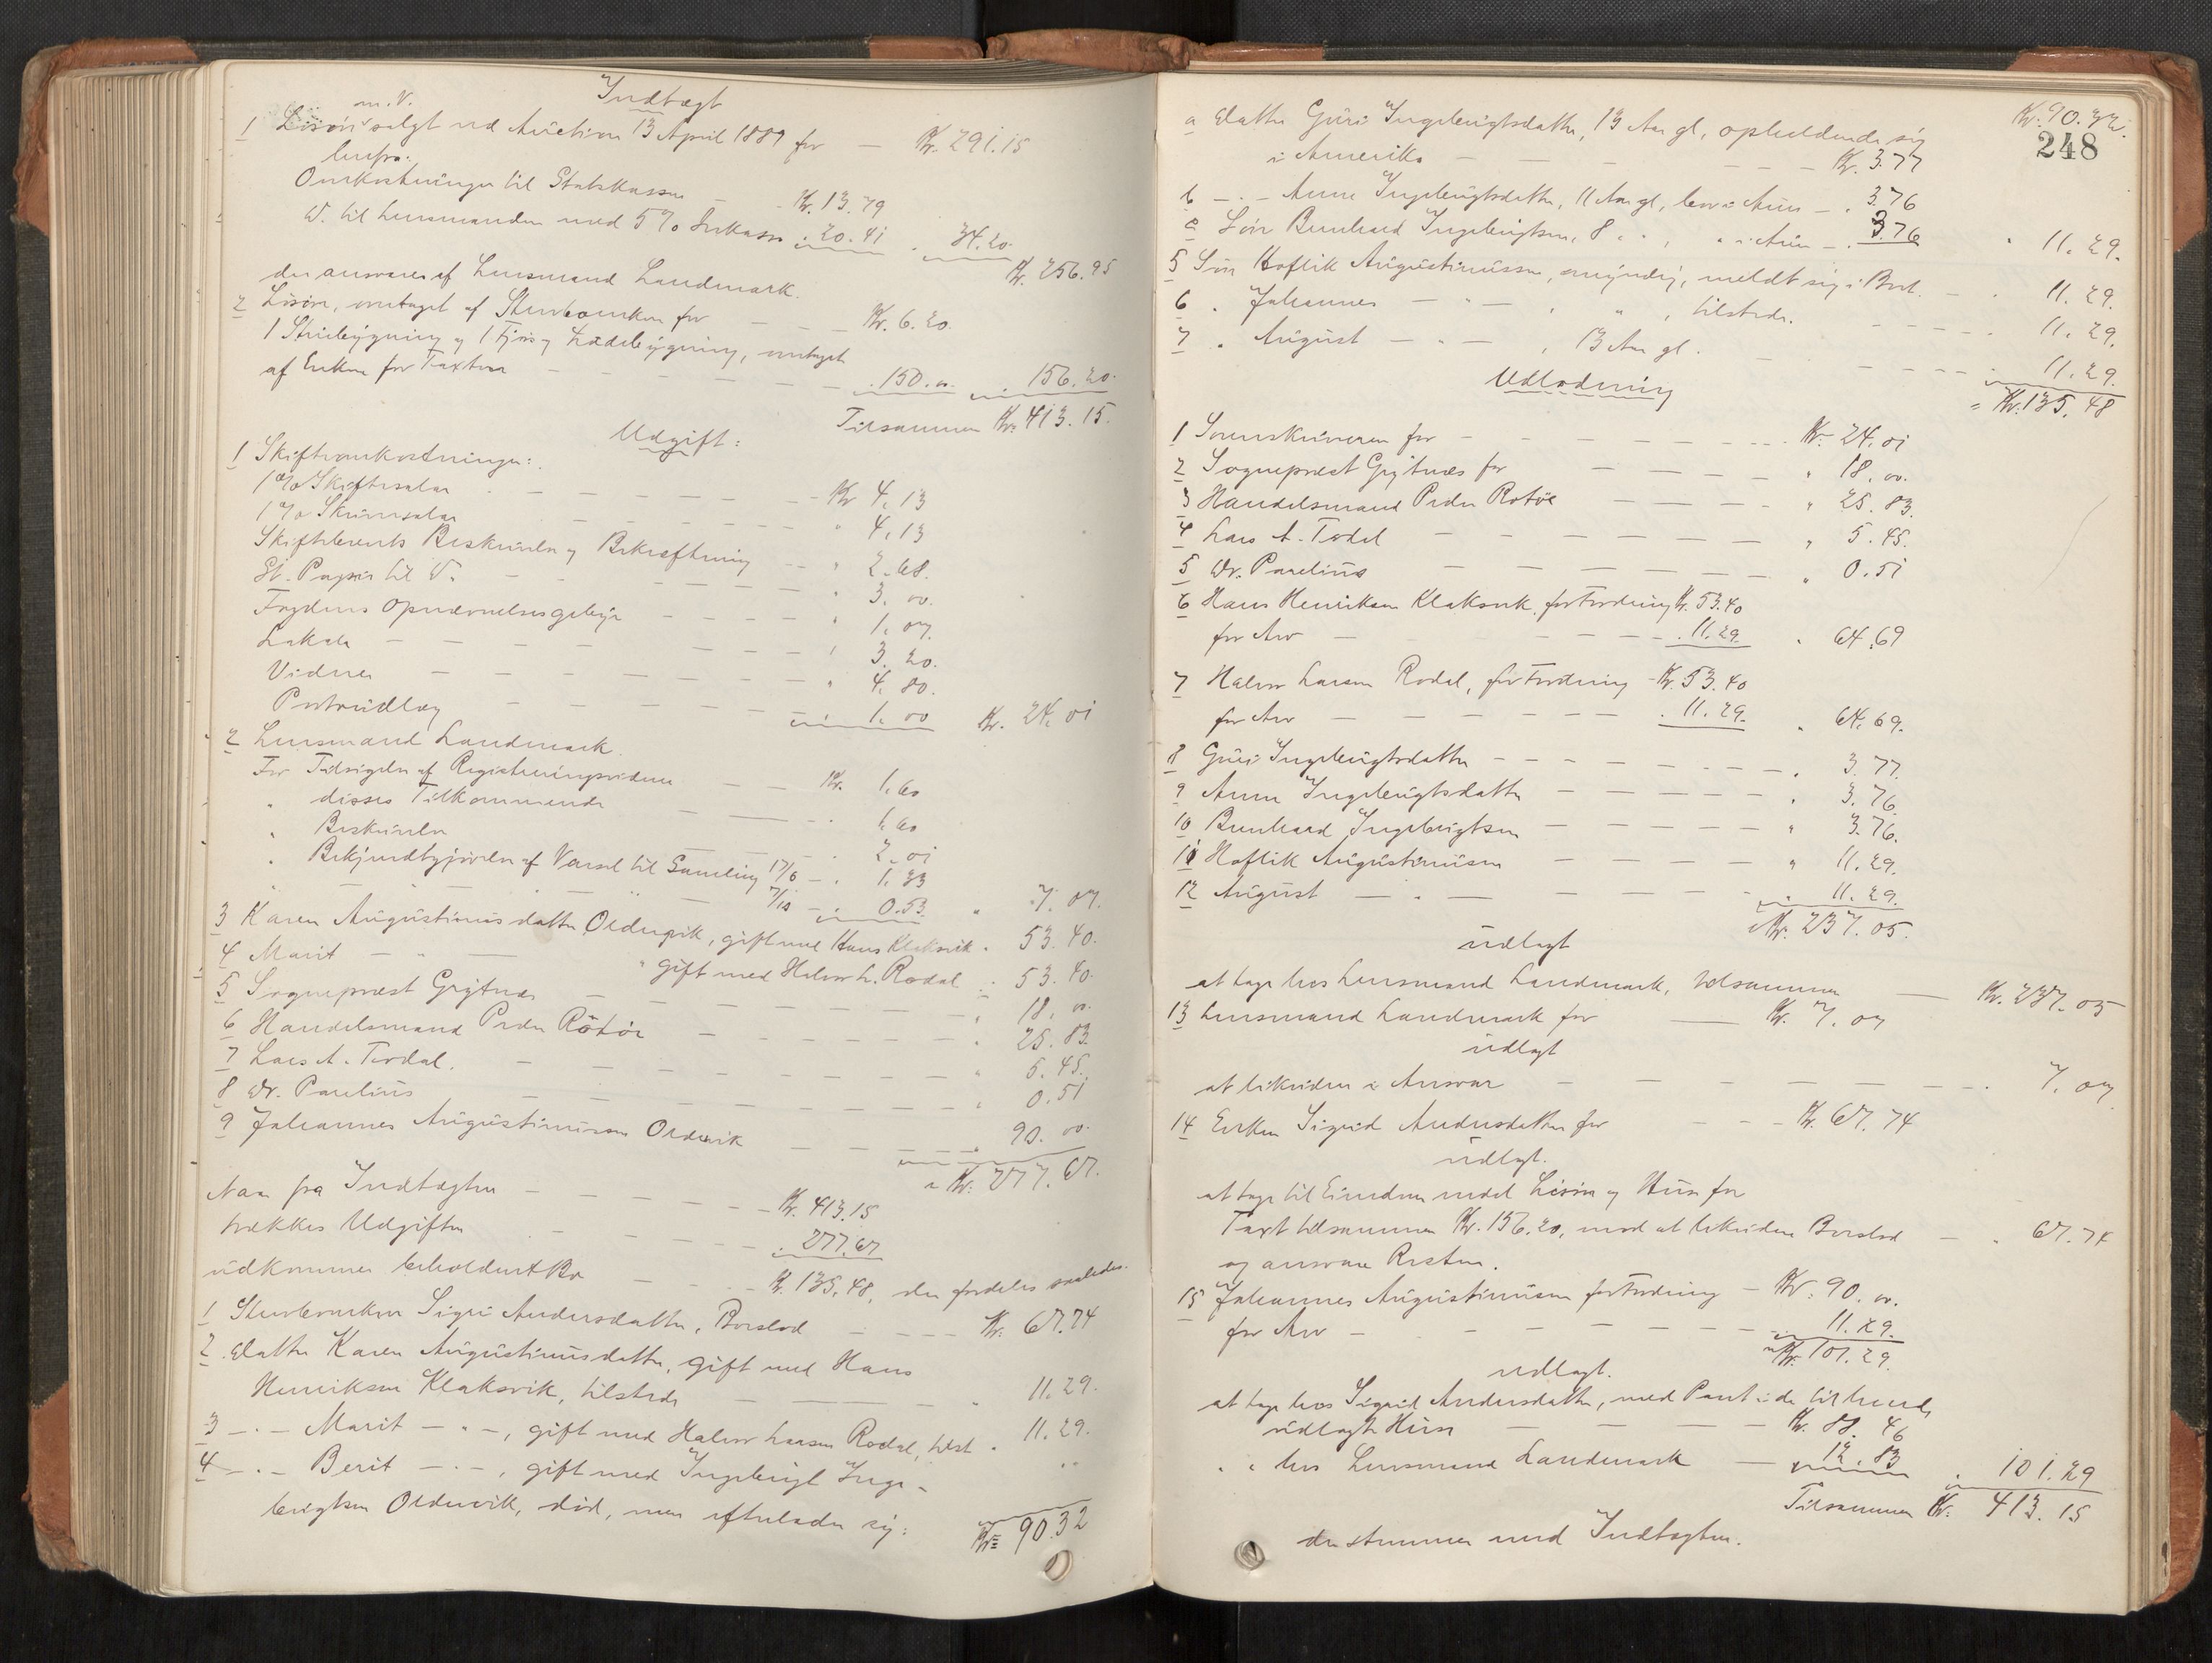 Indtægt
m. V.
1 Løsøre solgt ved Auction 13 April 1889 for — Kr. 291.15
herfra:
Omkostninger til Statskassen — Kr. 13.79
D. til Lensmanden med 5 % Inkasso " 20.41 " 34.20
Kr. 256.95
der ansvares af Lensmand Landmark.
2 Løsøre, modtaget af Stervboenken for — — Kr. 6.20.
1 Stuebygning og 1 Fjøs og Ladebygning, modtaget
af Enken for Taxten — — — — — " 150.00 " 156.20
Tilsammen Kr. 413.15.
Udgift:
1 Skifteomkostninger:
1 % Skiftesalar — — — — — Kr 4.13
1 % Skriversalar — — — — — " 4.13
Skiftebrevets Beskrivelse og Bekræftning — " 2.68.
St. Papir til D. — — — — " 3.00.
Fogdens Opnævnelsesgebyr — — — " 1.07.
Lokale — — — — — " 3.20.
Vidner — — — — — " 4.80.
Portoudlæg — — — — " 1.00 Kr. 24.01
2 Lensmand Landmark.
For Tilsigelse af Registreringsvidnerne — — Kr. 1.60
" disses Tilkommende — — — 1.60
" Beskrivelse — — — 2.01
" Bekjendtgjørelse af Varsel til Samling 17/6 — " 1.33
" — " — " — 7/10 — " 0.53. " 7.07.
3 Karen Augustinusdatter Oldervik, gift med Hans Klaksvik " 53.40.
4 Marit — " — " gift med Halvor L. Rodal " 53.40.
5 Sognepræst Grytnæs — — — — " 18.00.
6 Handelsmand Peder Rotøe — — — " 25.83.
7 Lars A. Todal. — — — — " 5.45.
8 Dr. Parelius — — — — " 0.51
9 Johannes Augustinussen Oldervik — — — " 90.00
= Kr. 277.67.
Naar fra Indtægten — — — — Kr. 413.15
trækkes Udgiften — — — " 277.67
udkommer beholdent Bo — — Kr. 135.48, der fordeles saaledes:
1 Stervboenken Sigri Andersdatter, Boeslod — — — Kr. 67.74
2 Datter Karen Augustinusdatter, gift med Hans
Henriksen Klaksvik, tilstede — — — " 11.29.
3 — " — Marit — " —, gift med Halvor Larsen Rodal, tilst " 11.29.
4 — " — Berit — " —, gift med Ingebrigt Inge-
brigtsen Oldervik, død, men efterlader sig:
Kr. 90.32
Kr. 90.32.
248
a Datter Guri Ingebrigtsdatter, 13 Aar gl, opholdende sig
i Amerika — — — — Kr. 3.77
b — " — Anne Ingebrigtsdatter, 11 Aar gl, lever i Aure — " 3.76
c Søn Bernhard Ingebrigtsen, 8 " " , " i Aure — " 3.76 " 11.29.
5 Søn Hoflik Augustinussen, myndig, meldt sig i Boet. — " 11.29.
6 " Johannes — " — , " , tilstede. — — — " 11.29.
7 " August — " — , 13 Aar gl. — — — " 11.29.
= Kr. 135.48
Udlodning
1 Sorenskriveren for — — — — Kr. 24.01
2 Sognepræst Grytnæs for — — — " 18.00.
3 Handelsmand Peder Rotøe — — — " 25.83.
4 Lars A. Todal — — — — " 5.45.
5 Dr. Parelius — — — — — " 0.51
6 Hans Henriksen Klaksvik, for Fordring Kr. 53.40
for Arv — — — — " 11.29. " 64.69
7 Halvor Larsen Rodal, for Fordring - Kr. 53.40
for Arv — — — — " 11.29. " 64.69.
8 Guri Ingebrigtsdatter — — — — " 3.77.
9 Anne Ingebrigtsdatter — — — — " 3.76
10 Bernhard Ingebrigtsen — — — — " 3.76.
11 Hoflik Augustinussen — — — — " 11.29.
12 August — " — — — — " 11.29.
Kr. 237.05.
udlagt
at tage hos Lensmand Landmark, tilsammen — Kr. 237.05
13 Lensmand Landmark for — Kr. 7.07
udlagt
at likvidere i Ansvar — — — — — " 7.07
14 Enken Sigrid Andersdatter for — — Kr. 67.74
udlagt.
at tage til Eiendom nedel Løsøre og Huse for
Taxt tilsammen Kr. 156.20, mod at likvidere Boeslod — " 67.74
og ansvare Resten.
15 Johannes Augustinussen for Fordring — Kr. 90.00.
for Arv — — — — — " 11.29.
Kr. 101.29.
udlagt.
at tage hos Sigrid Andersdatter, med Pant i de til hende
udlagte Huse — — — Kr. 88.46
" " hos Lensmand Landmark — " 12.83 " 101.29
Tilsammen Kr. 413.15
der stemmer med Indtægten.